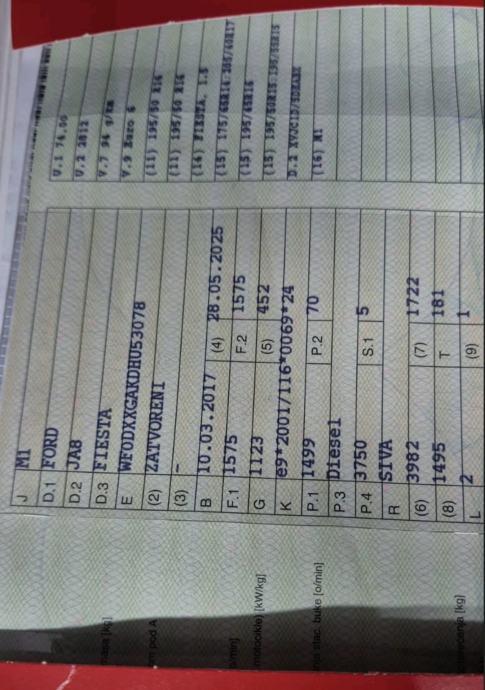 J M1
D.1 FORD
D.2 JA8
D.3 FIESTA
E WF0DXXGAKDHU53078
(2) ZATVORENI
(3) -
B 10.03.2017 (4) 28.05.2025
F.1 1575 F.2 1575
G 1123 (5) 452
K e9*2001/116*0069*24
P.1 1499 P.2 70
P.3 Diesel
P.4 3750 S.1 5
R SIVA
(6) 3982 (7) 1722
(8) 1495 T 181
L 2 (9) 1
U.1 74,00
U.2 2812
V.7 94 g/km
V.9 Euro 6
(11) 195/50 R16
(11) 195/50 R16
(14) FIESTA, 1.5
(15) 175/65R14;205/40R17
(15) 195/45R16
(15) 195/50R15;195/55R15
D.2
(16) M1
masa [kg]
om pod A
o/min]
motocikle) [kW/kg]
stac. buke [o/min]
[kg]